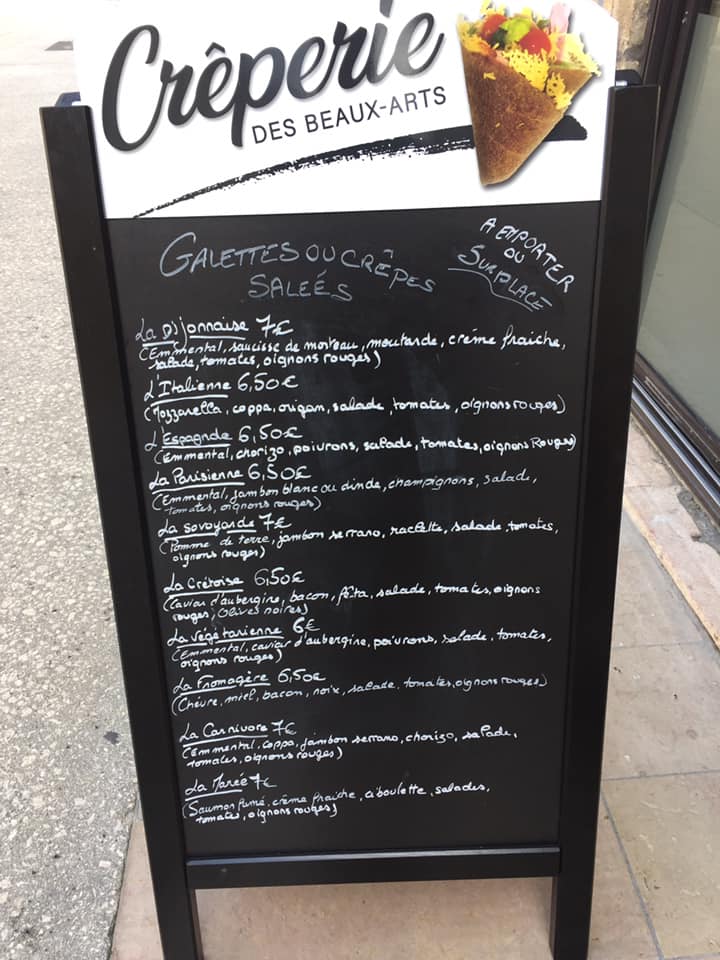 Crêperie
DES BEAUX-ARTS
GALETTES OU CRÊPES
SALEÉS
A EMPORTER
OU
SUR PLACE
La Dijonnaise 7€
(Emmental, saucisse de morteau, moutarde, crème fraiche,
salade, tomates, oignons rouges)
L'Italienne 6,50€
(Mozzarella, coppa, origan, salade, tomates, oignons rouges)
L'Espagnole 6,50€
(Emmental, chorizo, poivrons, salade, tomates, oignons Rouges)
La Parisienne 6,50€
(Emmental, jambon blanc ou dinde, champignons, salade,
tomates, oignons rouges)
La Savoyarde 7€
(Pomme de terre, jambon serrano, raclette, salade, tomates,
oignons rouges)
La Crétoise 6,50€
(Caviar d'aubergine, bacon, féta, salade, tomates, oignons
rouges, Olives noires)
La végétarienne 6€
(Emmental, caviar d'aubergine, poivrons, salade, tomates,
oignons rouges)
La Fromagère 6,50€
(Chèvre, miel, bacon, noix, salade, tomates, oignons rouges)
La Carnivore 7€
(Emmental, coppa, jambon serrano, chorizo, salade,
tomates, oignons rouges)
La Marée 7€
(Saumon fumé, crème fraiche, ciboulette, salades,
tomates, oignons rouges)